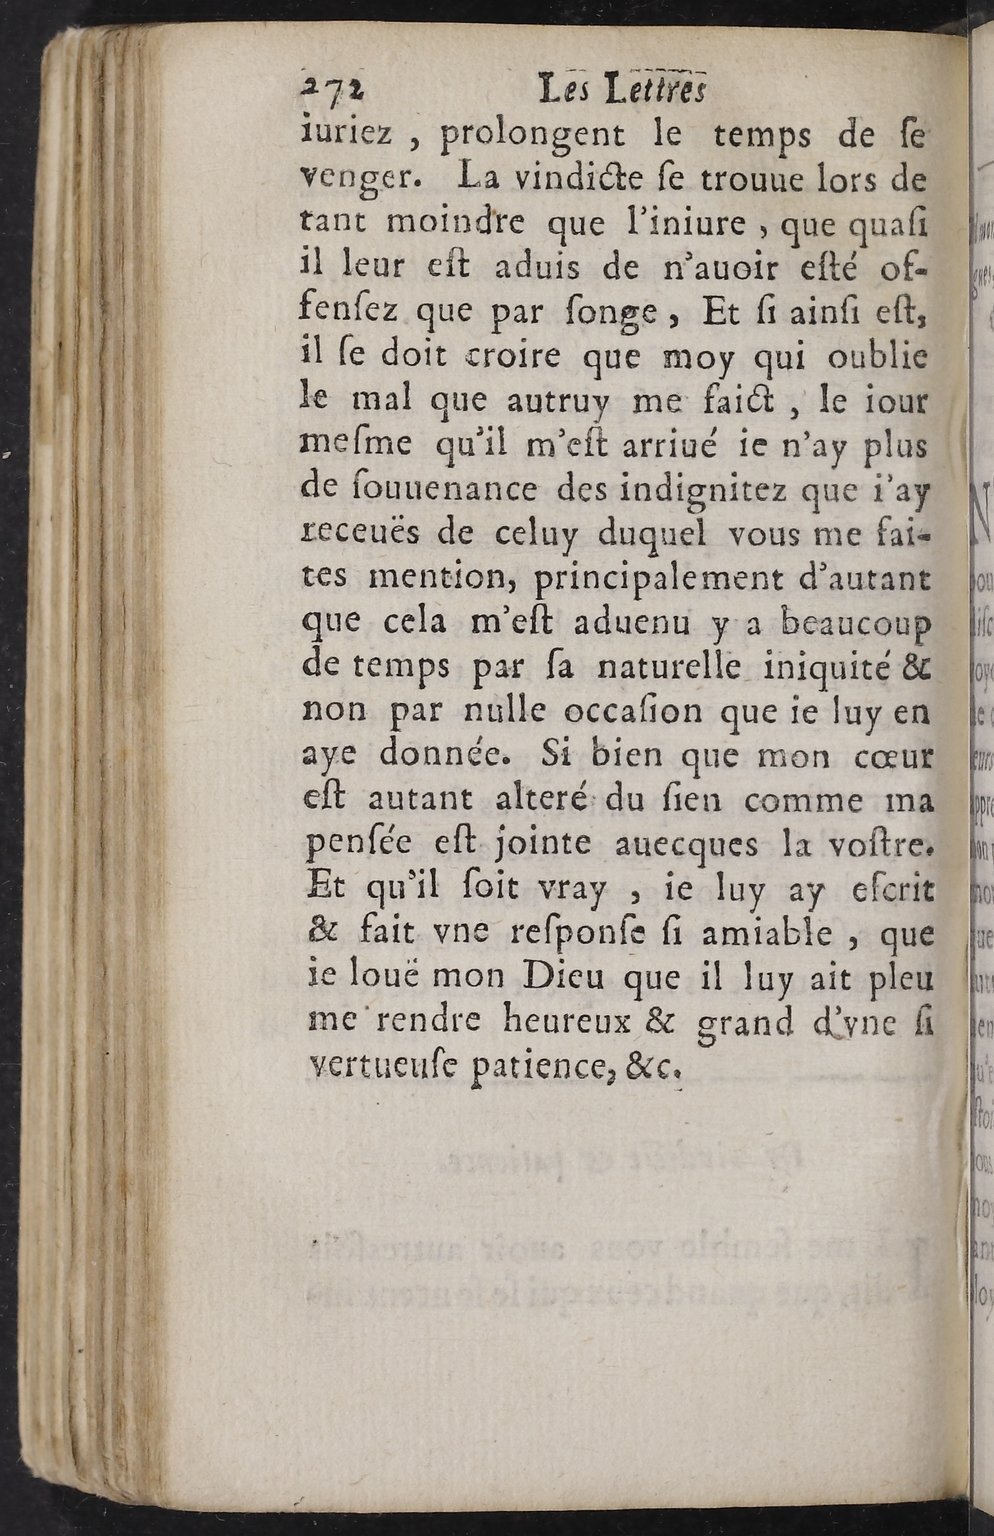 272 Les Lettres
iuriez , prolongent le temps de ſe
venger. La vindicte ſe trouue lors de
tant moindre que l'iniure , que quaſi
il leur eſt aduis de n'auoir eſté of-
fenſez que par ſonge , Et ſi ainſi eſt,
il ſe doit croire que moy qui oublie
le mal que autruy me faict , le iour
meſme qu'il m'eſt arriué ie n'ay plus
de ſouuenance des indignitez que i'ay
receuës de celuy duquel vous me fai-
tes mention, principalement d'autant
que cela m'eſt aduenu y a beaucoup
de temps par ſa naturelle iniquité &
non par nulle occaſion que ie luy en
aye donnée. Si bien que mon cœur
eſt autant alteré du ſien comme ma
penſée eſt jointe auecques la voſtre.
Et qu'il ſoit vray , ie luy ay eſcrit
& fait vne reſponſe ſi amiable , que
ie louë mon Dieu que il luy ait pleu
me rendre heureux & grand d'vne ſi
vertueuſe patience, &c.